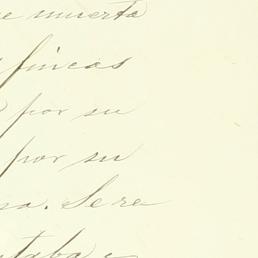 e muerta
fincas
por su
por su
sa. Se re
taba e